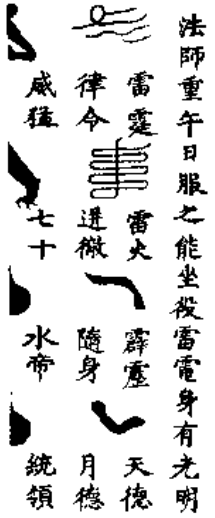 法師重午日服之能坐役雷電身有光明
雷霆 雷火 霹靂 天德
律令 迸徹 隨身 月德
威猛 七十 水帝 統領